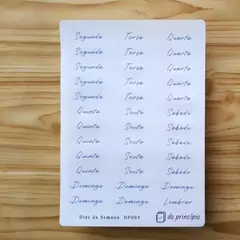 Segunda Terça Quarta
Segunda Terça Quarta
Segunda Terça Quarta
Segunda Terça Quarta
Segunda Terça Quarta
Quinta Sexta Sábado
Quinta Sexta Sábado
Quinta Sexta Sábado
Quinta Sexta Sábado
Quinta Sexta Sábado
Domingo Domingo Domingo
Domingo Domingo Lembrar
Dias da Semana DP005
do princípio